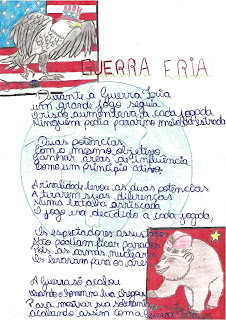 GUERRA FRIA
Durante a Guerra Fria
um grande jogo seguia
O risco aumentava a cada jogada
Ninguém podia parar no meio da estrada
Duas potências,
com o mesmo objetivo,
Ganhar áreas de influência
como um princípio ativo.
A rivalidade levou as duas potências
A tirarem suas diferenças
Numa batalha arriscada
O jogo era decidido a cada jogada,
Os espectadores assustados
Não podiam ficar parados
Pois as armas nucleares
Os levaram para os ares
A Guerra só acabou
Quando o homem na lua chegou
Para mostrar sua
acabando assim com a Guerra Fria